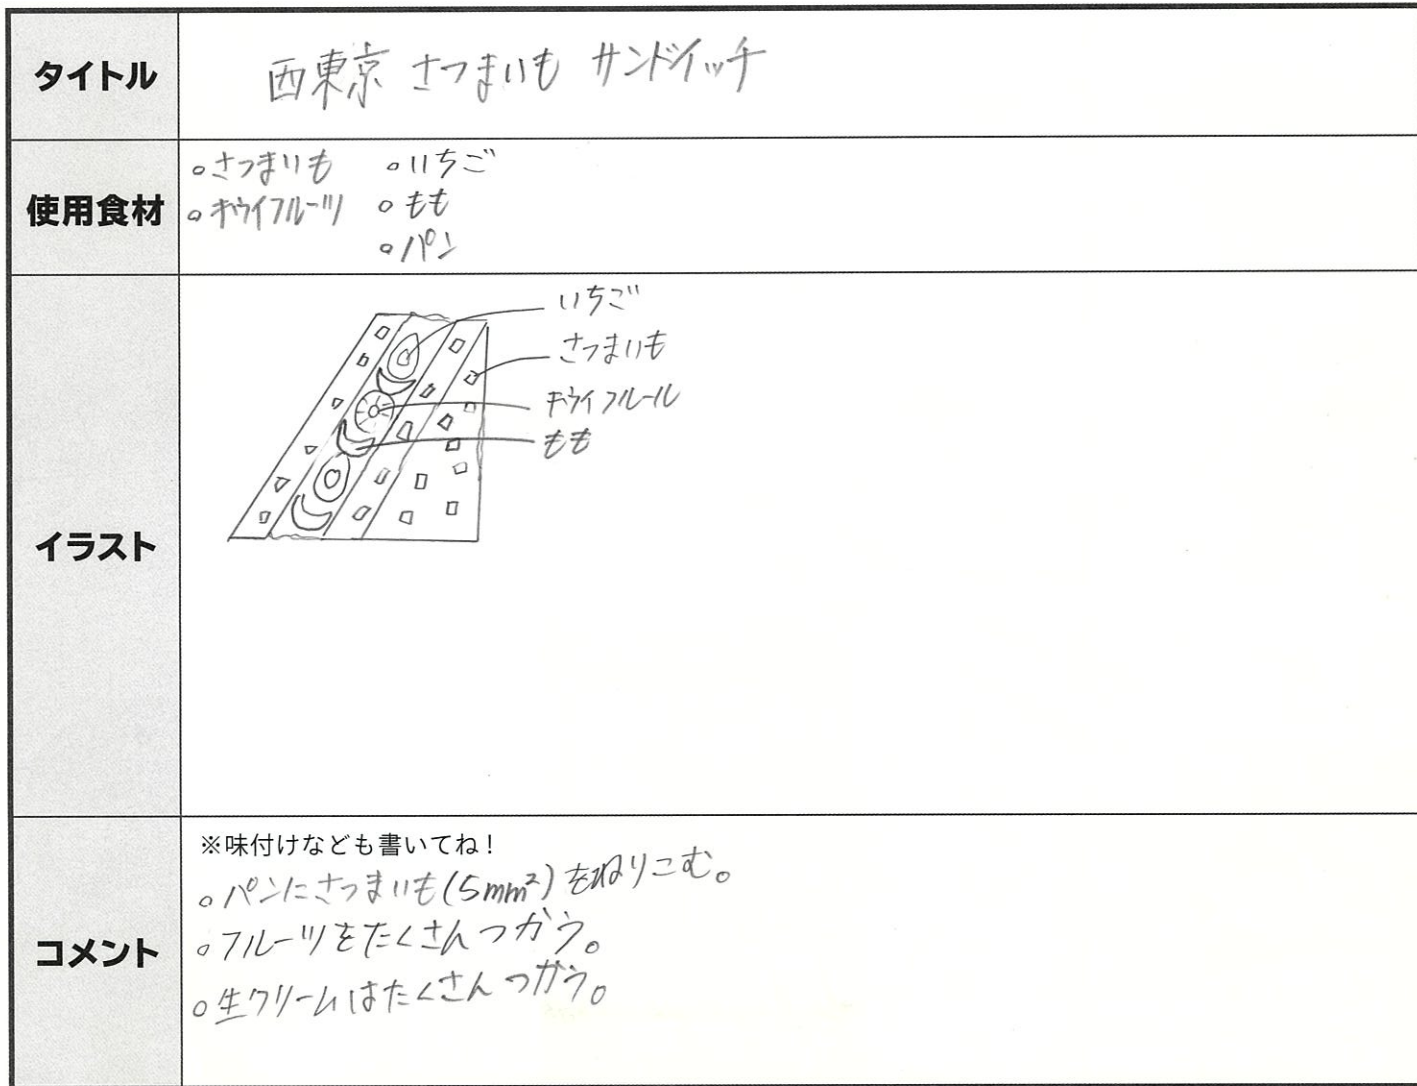 タイトル
西東京 さつまいも サンドイッチ
使用食材
○さつまいも ○いちご
○キウイフルーツ ○もも
○パン
イラスト
いちご
さつまいも
キウイフルール
もも
コメント
※味付けなども書いてね！
○パンにさつまいも(5mm²)をねりこむ。
○フルーツをたくさんつかう。
○生クリームはたくさんつかう。